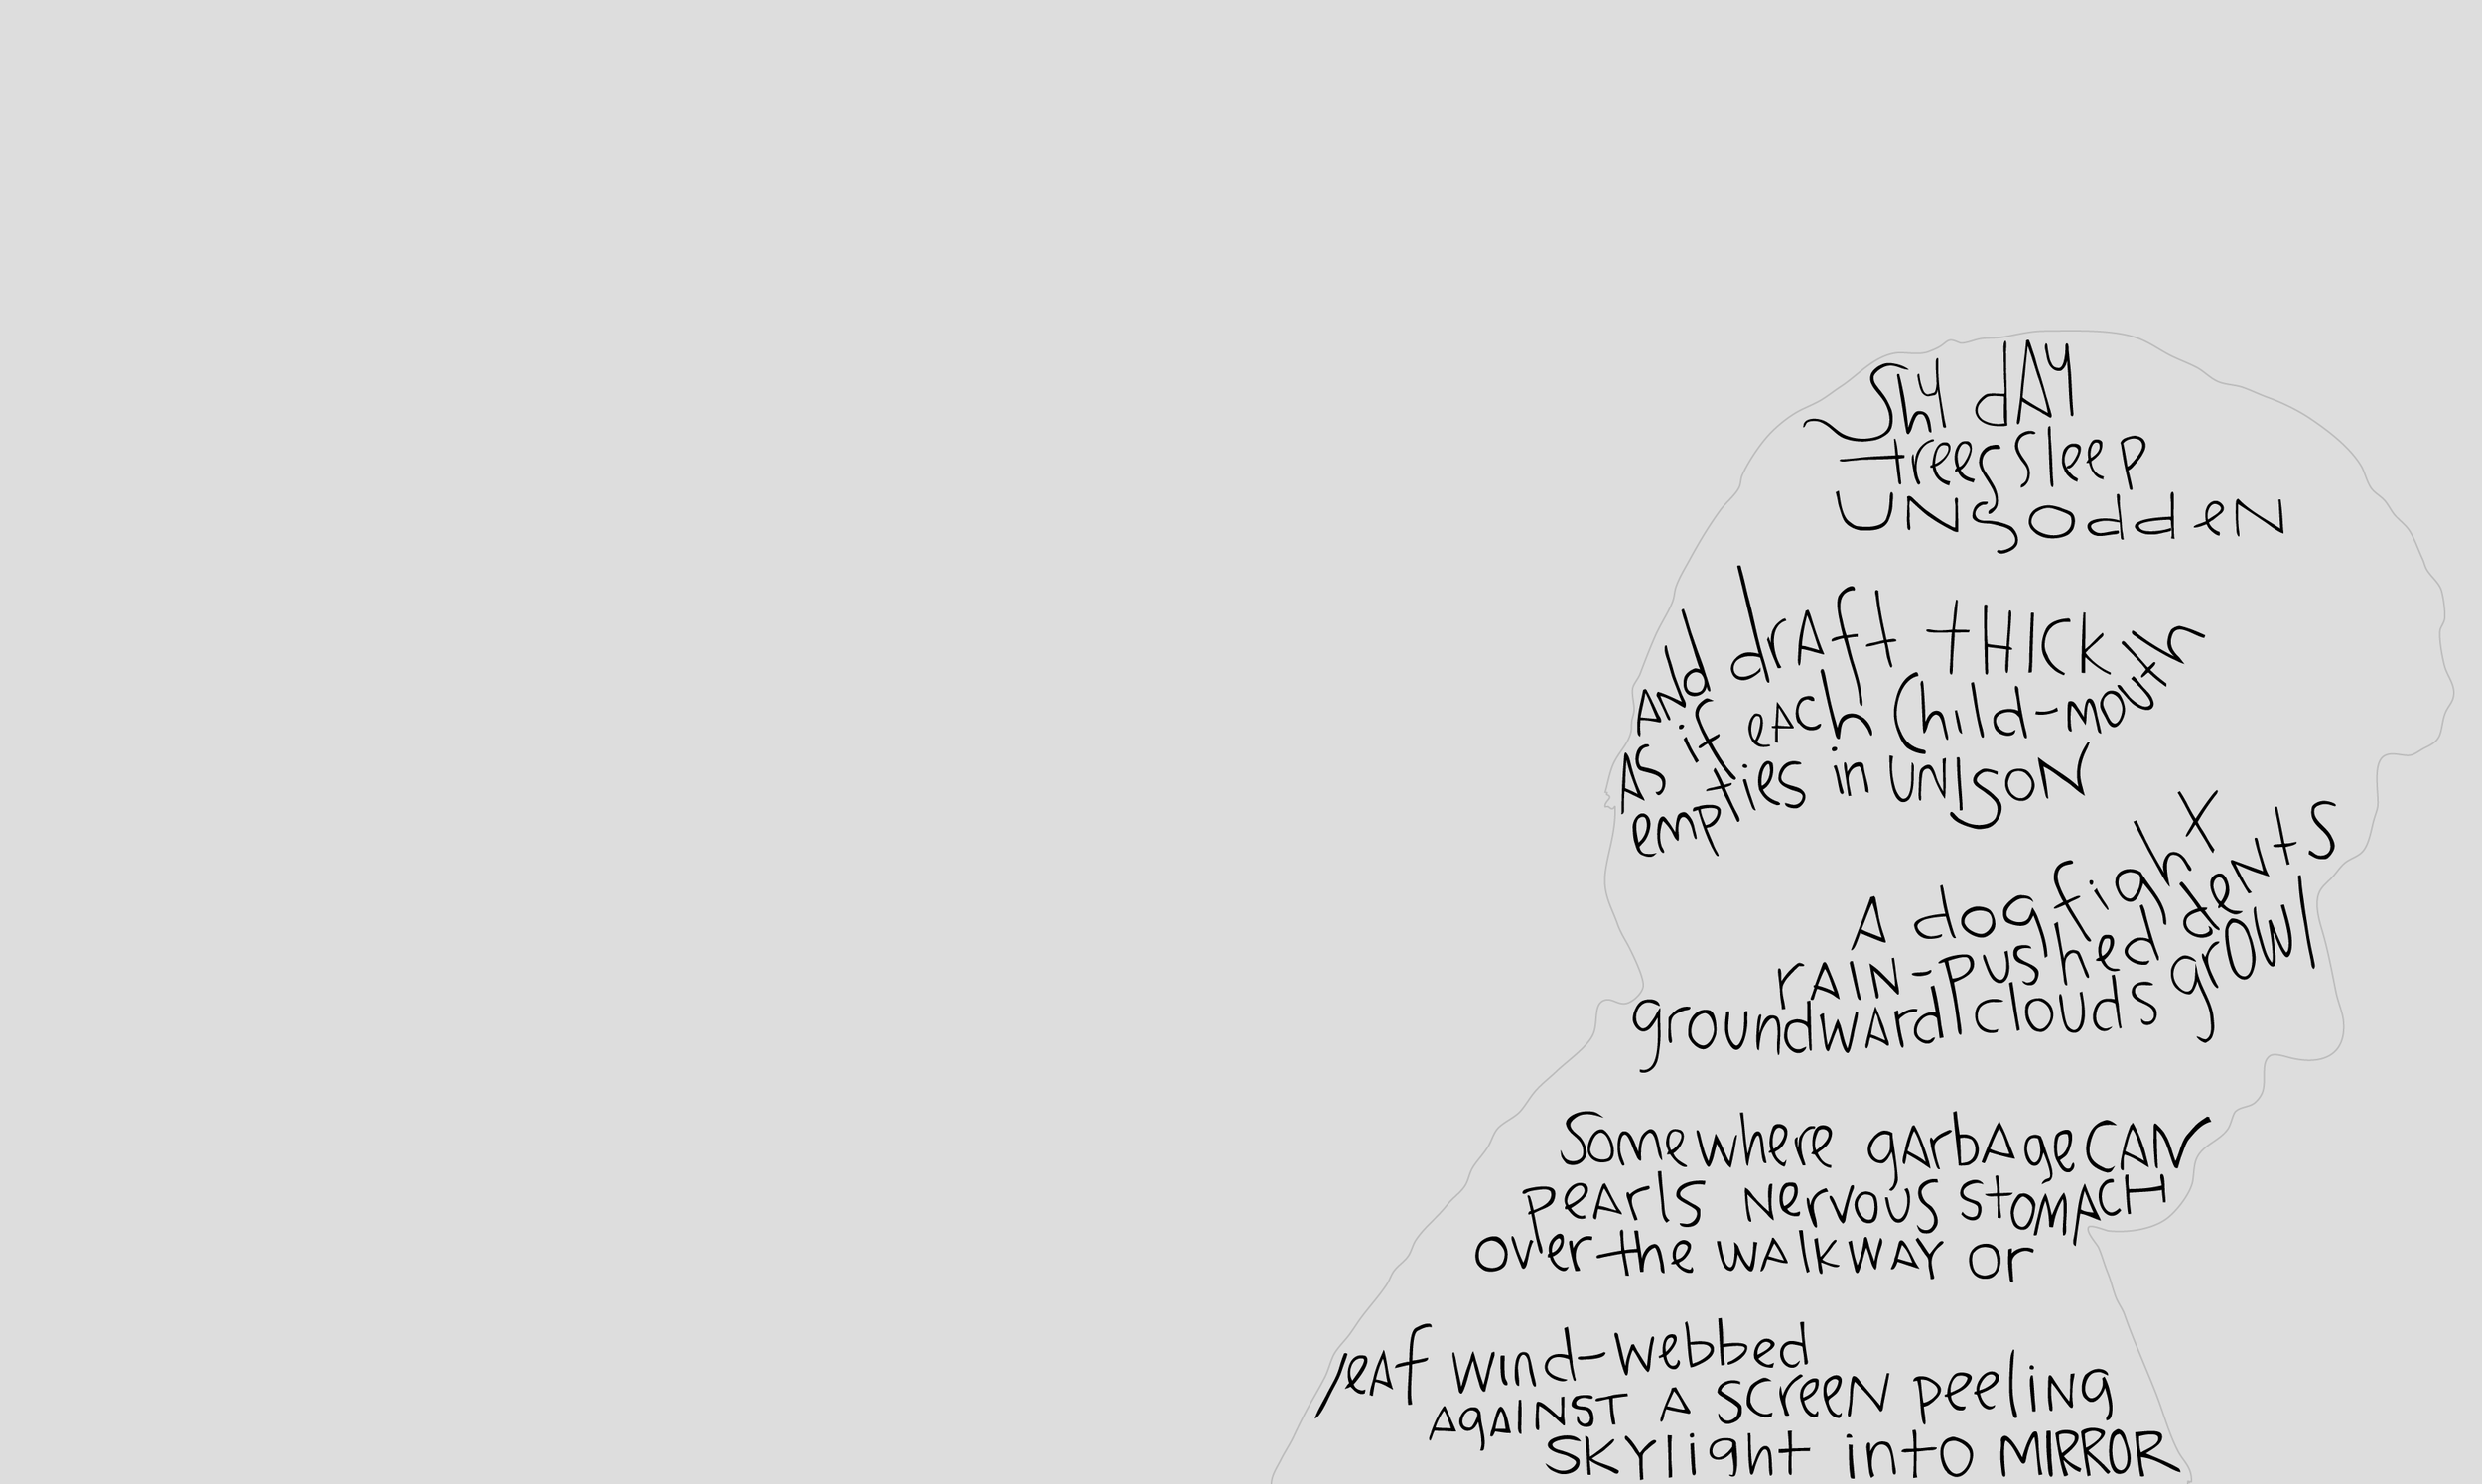 Shy dAy
trees sleep
UNsoddeN
ANd drAft tHICK
As if eAch Child-mouth
empties in UNISON
A dogfight
rAIN-pushed deNts
groundwArd clouds growl
Somewhere gArbAge CAN
peArls Nervous stomACH
over the wAlkwAy or
leAf wind-webbed
AgAINST A screeN peeliNg
SKYlight into MIRROR